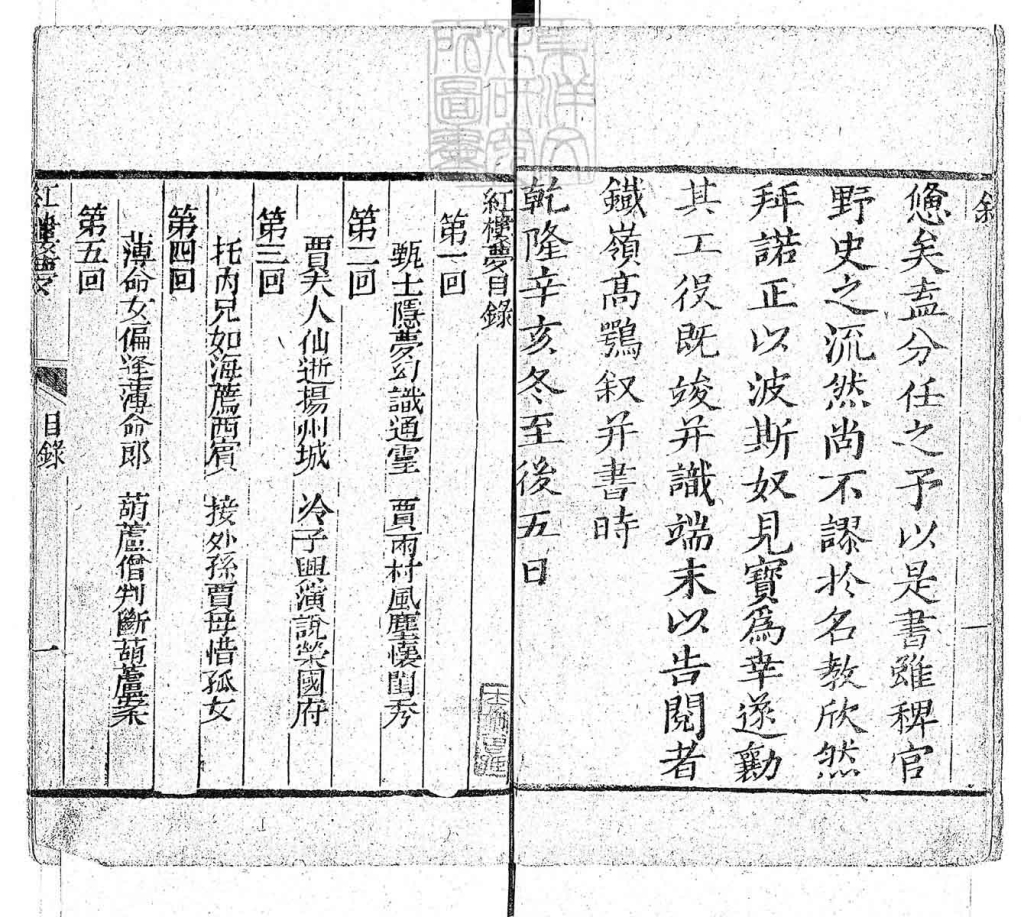 敘
憊矣盍分任之予以是書雖稗官
野史之流然尚不謬於名教欣然
拜諾正以波斯奴見寶為幸遂襄
其工役既竣并識端末以告閱者
鐵嶺高鶚叙并書時
乾隆辛亥冬至後五日
東洋文化研究所圖書
紅樓夢目錄
第一回
甄士隱夢幻識通靈　賈雨村風塵懷閨秀
第二回
賈夫人仙逝揚州城　冷子興演說榮國府
第三回
托內兄如海薦西賓　接外孫賈母惜孤女
第四回
薄命女偏逢薄命郎　葫蘆僧判斷葫蘆案
第五回
紅樓夢　目錄　一